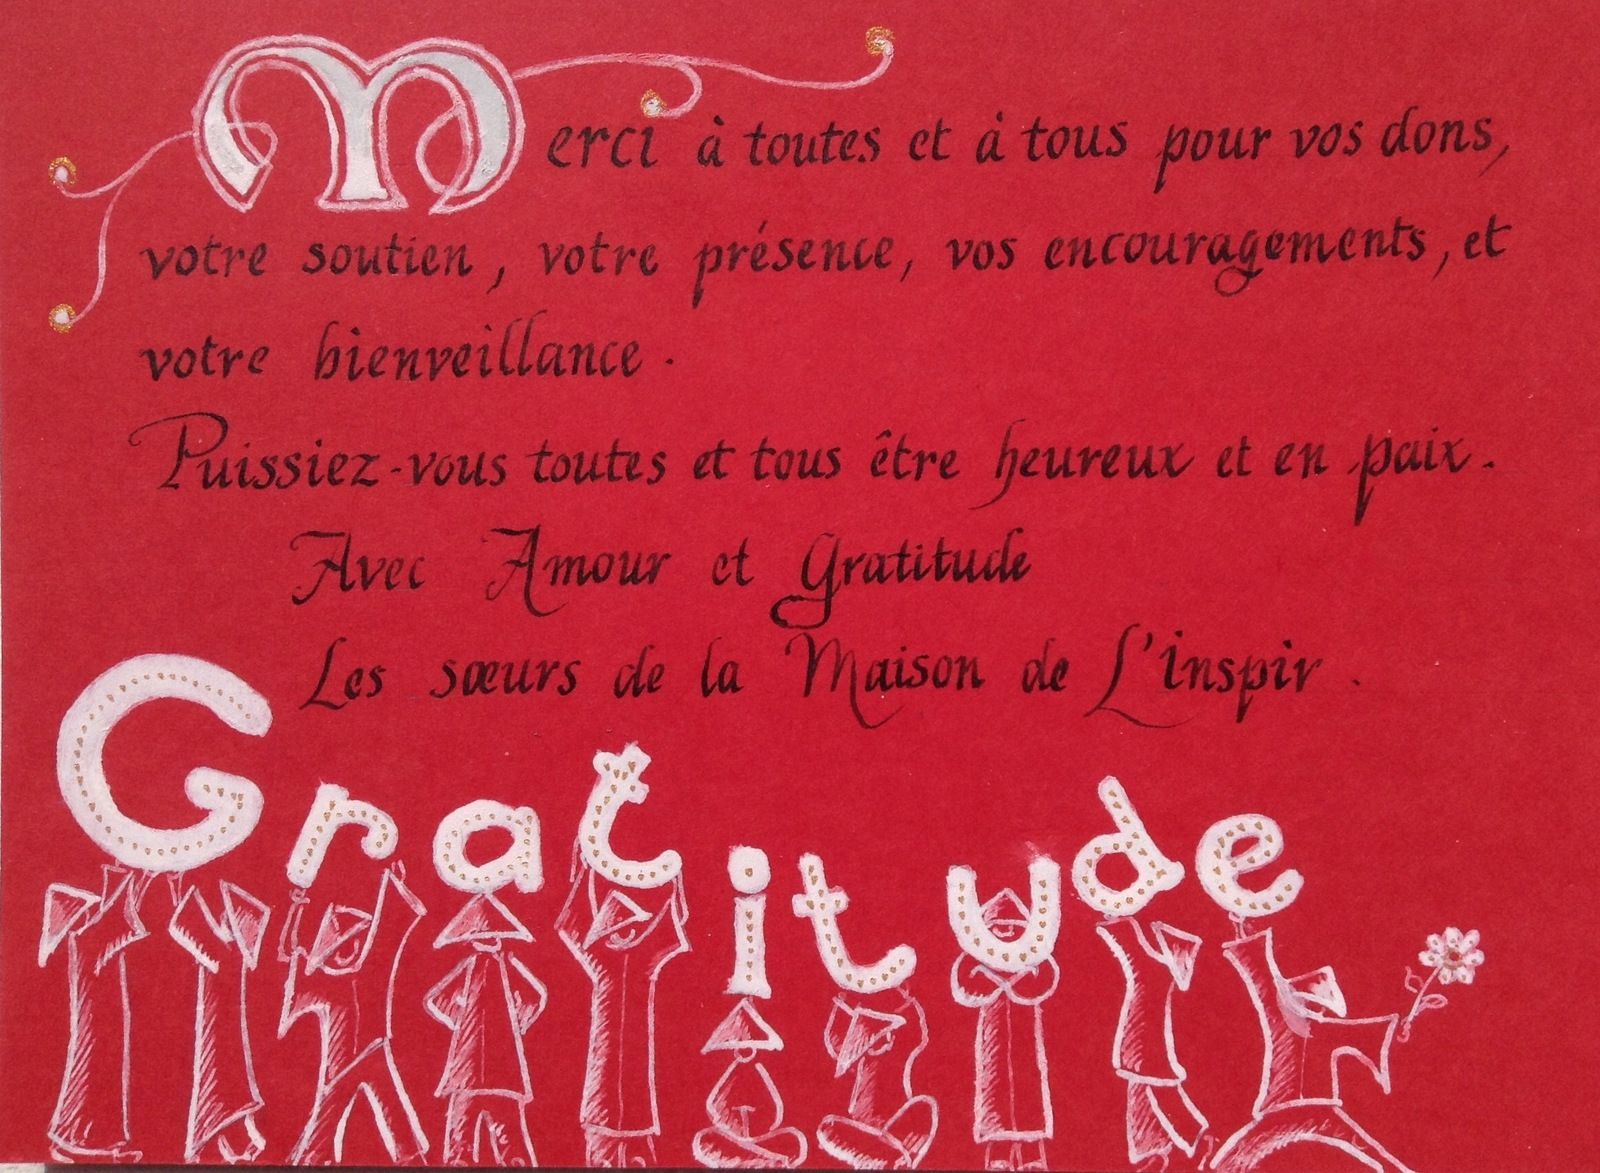 Merci à toutes et à tous pour vos dons,
votre soutien, votre présence, vos encouragements, et
votre bienveillance.
Puissiez-vous toutes et tous être heureux et en paix.
Avec Amour et Gratitude
Les sœurs de la Maison de L'inspir.
Gratitude